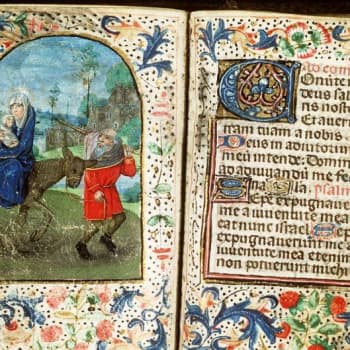 Ad com
Conuerte n
deus salu
ris nostr
Et auerte
iram tuam a nobis
Deus in adiutoriu
meū intende: Domi
ad adiuuandū me fe
na. Gla. psalm
Sepe expugnaue
me a iuuentute mea
cat nunc israel. Sepe
expugnauerūt me a
iuuentute mea eteni
non potuerunt michi